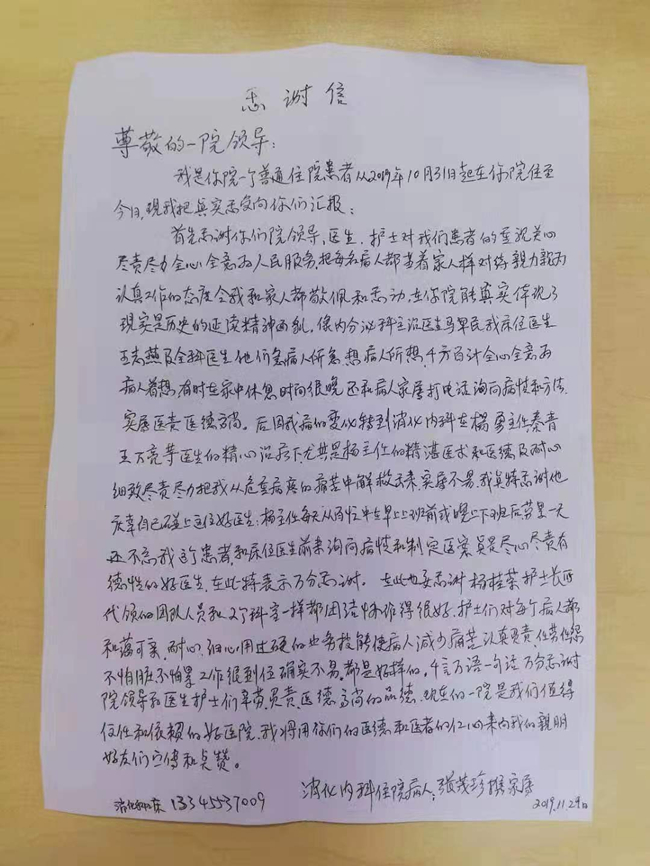 感谢信
尊敬的一院领导:
我是你院一个普通住院患者从2019年10月31日起在你院住至
今日,现我把真实感受向你们汇报:
首先感谢你们院领导,医生,护士对我们患者的重视关心
尽责尽力全心全意为人民服务,把每名病人都当着家人样对待,亲力亲为
认真工作的态度令我和家人都敬佩和感动,在你院能真实体现了
现实是历史的延续精神面乱,像内分泌科主治医生马早民我床位医生
王志燕及全科医生他们急病人所急,想病人所想,千方百计全心全意为
病人着想,有时在家中休息时间很晚还和病人家属打电话询问病情和方法,
实属医责医德高尚。后因我病的变化转到消化内科在杨勇主任秦青
王万亮等医生的精心治疗下尤其是杨主任的精湛医术和医德及耐心
细致尽责尽力把我从危重病疼的痛苦中解救出来实属不易,我真特感谢他
庆幸自己碰上这位好医生,杨主任每天从百忙中在早上上班前或晚上下班后劳累一天
还不忘我这个患者,和床位医生前来询问病情和制定医案真是尽心尽责有
德性的好医生,在此特表示万分感谢。在此也要感谢杨桂荣护士长所
代领的团队人员和2个科室一样都团结协作得很好,护士们对每个病人都
和蔼可亲,耐心,细心用过硬的业务技能使病人减少痛苦认真负责,任劳任怨
不怕脏不怕累工作很到位确实不易。都是好样的,千言万语一句话万分感谢
院领导及医生护士们辛劳负责医德高尚的品德,现在的一院是我们值得
信任和依赖的好医院,我将用你们的医德和医者的仁心来向我的亲朋
好友们宣传和点赞。
消化内科住院病人:张茂珍携家属
消化科床 13345537009
2019.11.29日